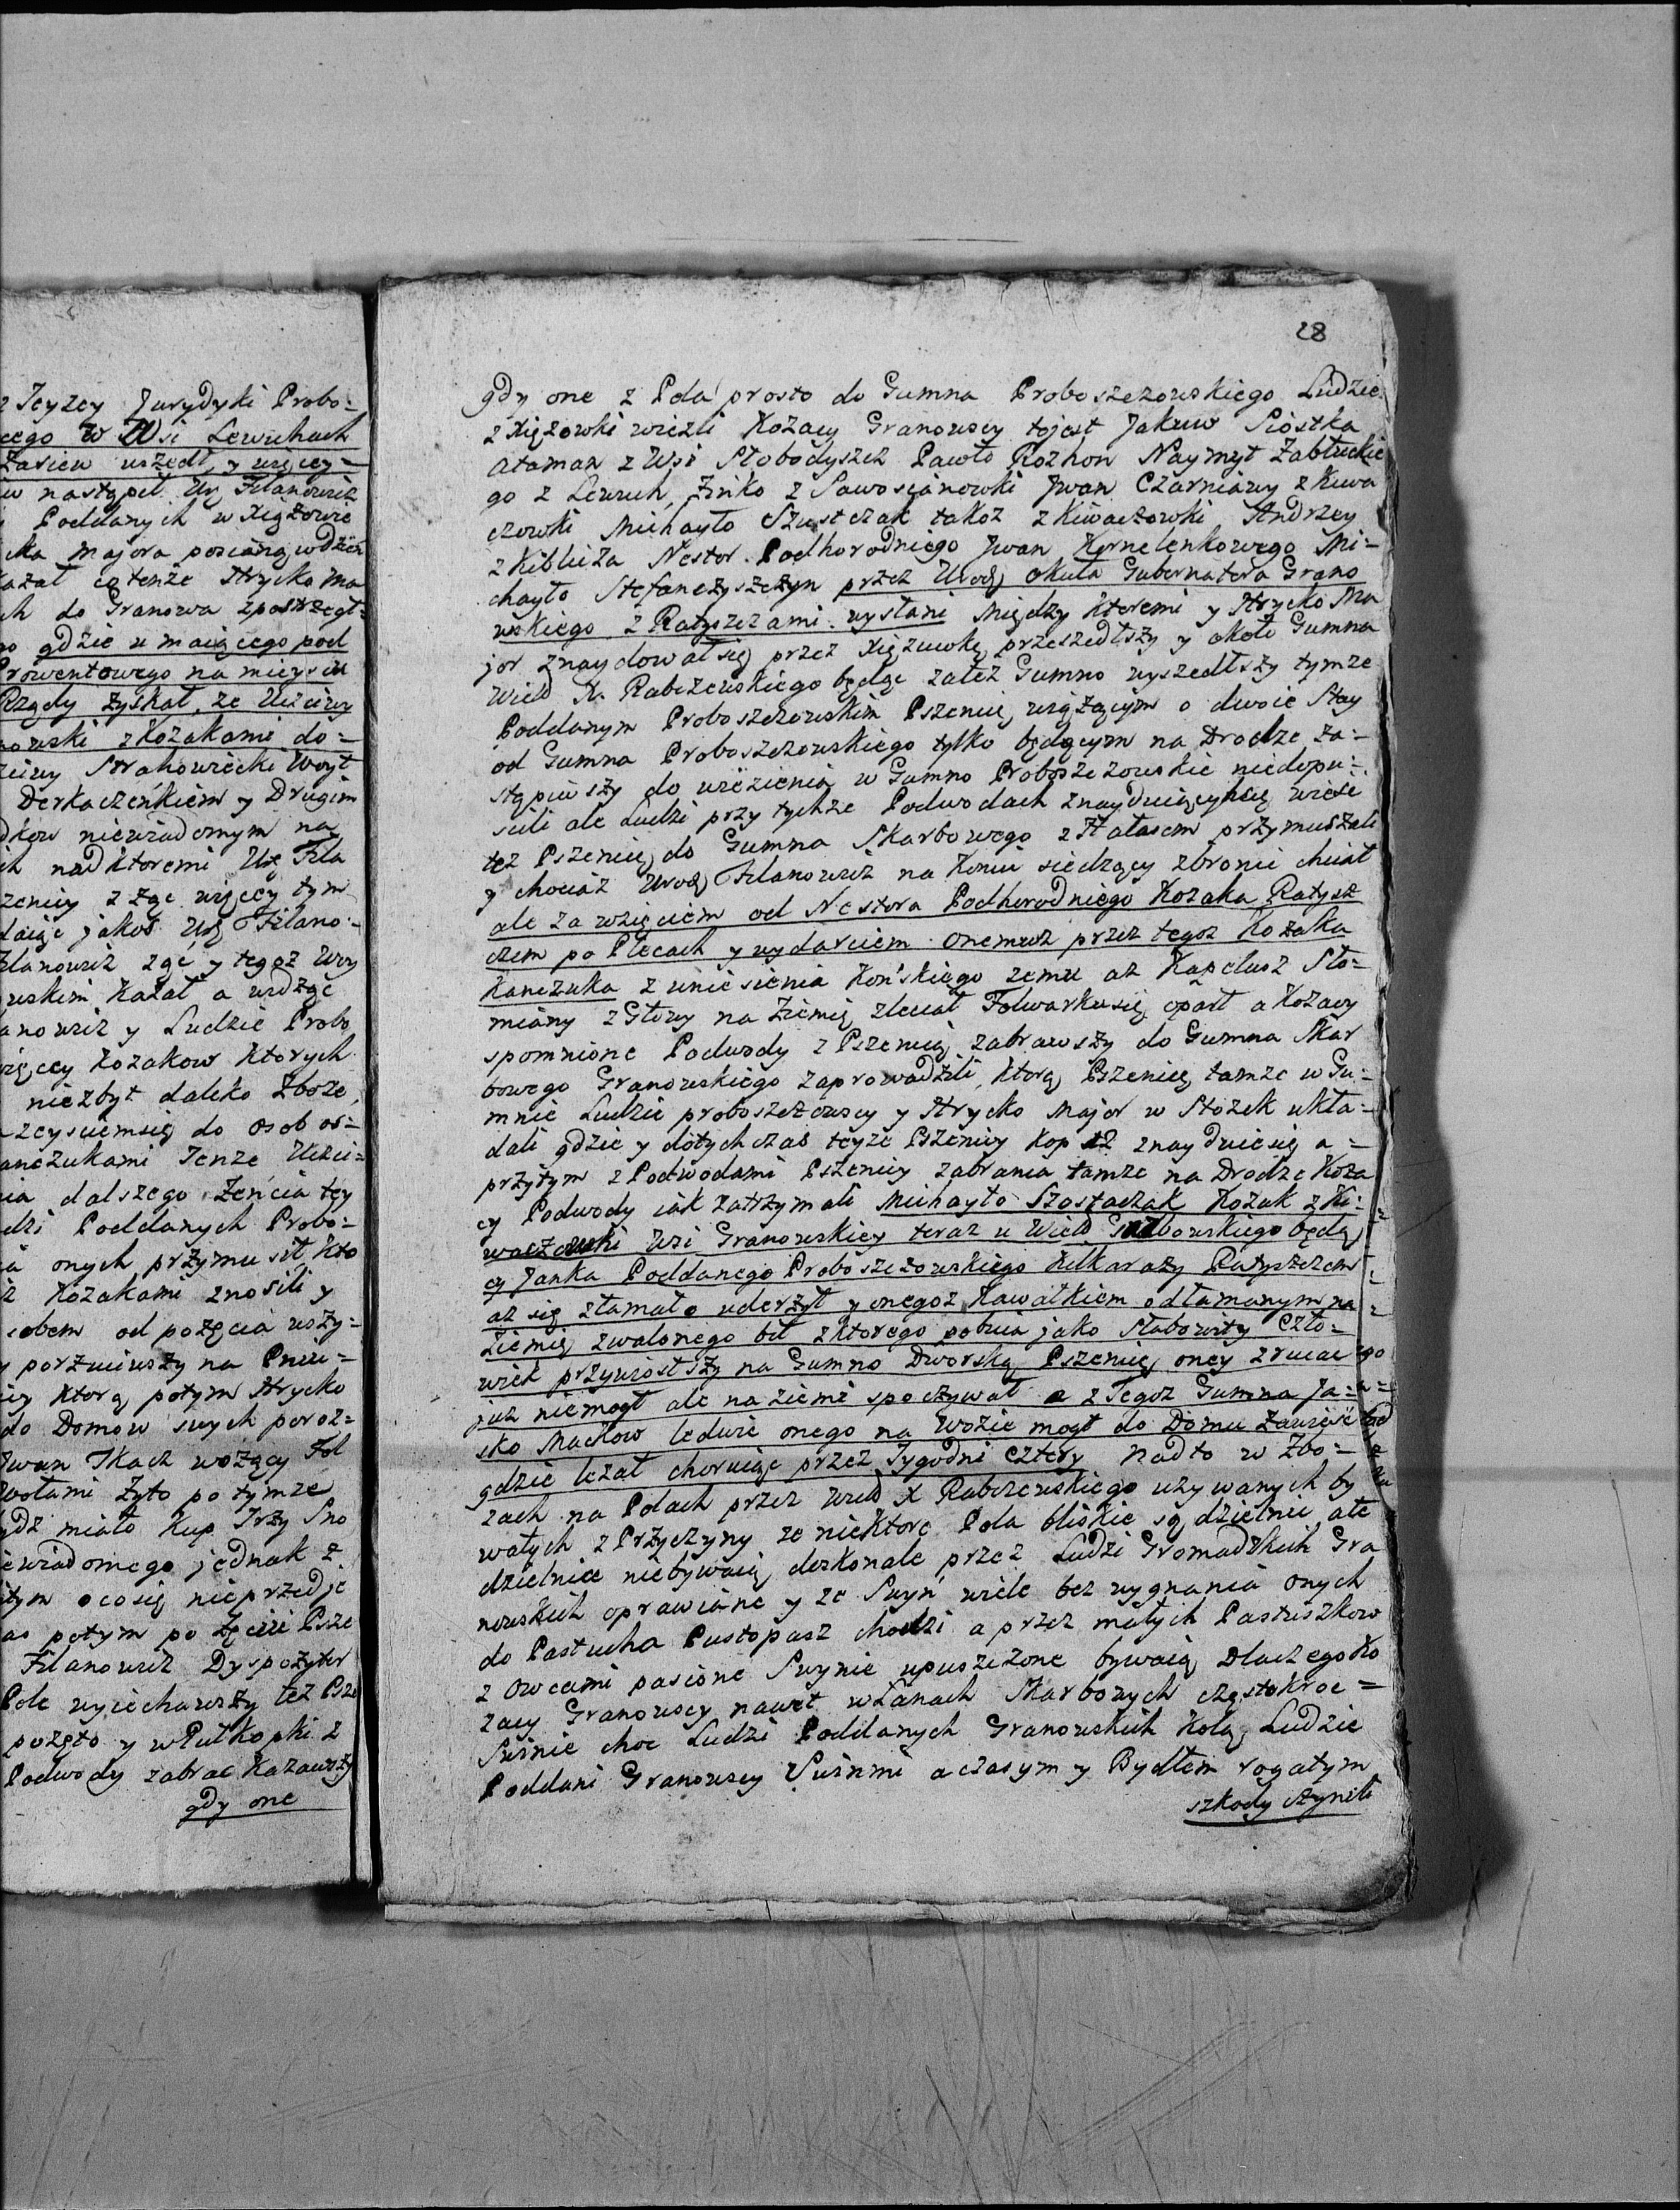 z Teyzey Jurydyki Probo=
cego w Wsi Lewuchach
wszedł, y więcey=
w nastąpił Ur Filanowicz
Poddanych w Xiężowie
cka majora
kazał tenże Hrycko Ma
ch do Granowa zpostrzegł=
gdzie u maiącego pod
Prowentowego na mieyscu
Rządy zyskał, że Uczciwy
nowski z Kozakami do=
Strahowiecki Woyt
Derkaczeńkiem y Drugim
niewiadomym na
ch nad ktoremi Ur Fila
zenicy z żąc więcey tym
daiąc jakoś Ur Filano=
Filanowicz żąć y tegoż Woy
uskim Kazał a widząc
anowicz y Ludzie Probo
więcey Kozakow ktorych
niezbyt daleko Zboże,
sciemsię do osob os=
anczukami Tenże Uczci=
ia dalszego Zeńcia tey
dzi Poddanych Probo=
ia onych przymusił, kto
z Kozakami znosili y
sobem od pozęcia wszy=
y porzuciwszy na Pniu=
icy ktorą potym Hrycko
do Domow swych poroz=
Iwan Tkacz wożący Fol
Wołami Żyto po tymze
gdz miało Kup Trzy Sno
iewiadomego jednak z
tym ocosię nieprzedje
as potym po żęciu Psze
Filanowicz Dyspozytor
Pole wyiechawszy też Psze
pożęto y w Pułkopki z
Podwody zabrac Kazawszy
gdy one
28
gdy one z Pola prosto do Gumna Proboszczowskiego Ludzie
z Xiężowki wiezli Kozacy Granowscy tojest Jakuw Piostka
Ataman z Wsi Słobodyszcz Pawło Rozhon Naymyt Zabłuckie
go z Lewuch, Zinko z Sawosianowki Iwan Czarniawy z Kiwa
czowki Michayło Szustczak takoz z Kiwaczowki Andrzey
z Kiblicza Nestor Podhorodniego Iwan Kornelenkowego Mi=
chayło Stefanczyszczyn przez Urodz Okuła Gubernatora Grano
wskiego z Ratyszczami wysłani między ktoremi y Hrycko Ma
jor znaydowałsię przez Xiężuwkę przeszedłszy y około Gumna
Wield X. Rabczewskiego będąc zaleź Gumno wyszedłszy tymze
Poddanym Proboszczowskim Pszenicę wiążącym o dwoie Stay
od Gumna Proboszczowskiego tylko będącym na Drodze za=
stąpiwszy do wiezienia w Gumno Proboszczowskie niedopu=
scili ale Ludzi przy tychze Podwodach znayduiącychsię wiesć
też Pszenicę do Gumna Skarbowego z Hałasem przymuszali
y chociaż Urodz Filanowicz na Koniu siedzący zbronić chciał
ale za wzięciem od Nestora Podhorodniego Kozaka Ratysz
czem po Plecach y wydarciem onemuż przez tegoz Kozaka
Kanczuka z uniesienia Końskiego zemu aż Kapelusz Sło=
miany z Głowy na Ziemię zleciał Folwarkusię oparł a Kozacy
spomnione Podwody z Pszenicą zabrawszy do Gumna Skar
bowego Granowskiego zaprowadzili, ktorą Pszenicę tamze w Gu=
mnie Ludzie proboszczowscy y Hrycko Major w Stożek ukła=
dali gdzie y dotychczas teyże Pszenicy Kop 12 znayduiesię a=
przytym z Podwodami Pszenicy zabrania tamze na Drodze Koza
cy Podwody iak zatrzymali Michayło Szostaczak Kozak z Ki=
waczowki Wsi Granowskiey teraz u Wield Grabowskiego będą
cy Janka Poddanego Proboszczowskiego kilka razy Ratyszczem
aż się złamało uderzył y onegoż Kawałkiem odłamanym na
Ziemię zwalonego bił z ktorego pobicia jako słabowity Czło=
wiek przywiosłszy na Gumno Dworską Pszenicę oney zrucac
juz niemogł ale na ziemi spoczywał a z Tegoż Gumna Ja=
sko Maciow ledwie onego na Wozie mogł do Domu Zawieść
gdzie leżał choruiąc przez Tygodni cztery Nadto w Zbo=
zach na Polach przez Wield X Rabczewskiego używanych by
wałych z Przyczyny że niektore Pola bliskie są dzielnic ale
dzielnice niebywaią doskonale przez Ludzi Gromadzkich Gra
nowskich oprawiane y że Swyń wiele bez wygnania onych
do Pastucha Pustopasz chodzi a przez małych Pastuszkow
z Owcami pasione Swynie upuszczone bywaią Dlaczego Ko
zacy Granowscy nawet w Łanach Skarbowych częstokroc=
Swinie choc Ludzi Poddanych Granowskich Kolą Ludzie
Poddani Granowscy Swinmi a czasym y Bydłem rogatym
szkody czynili